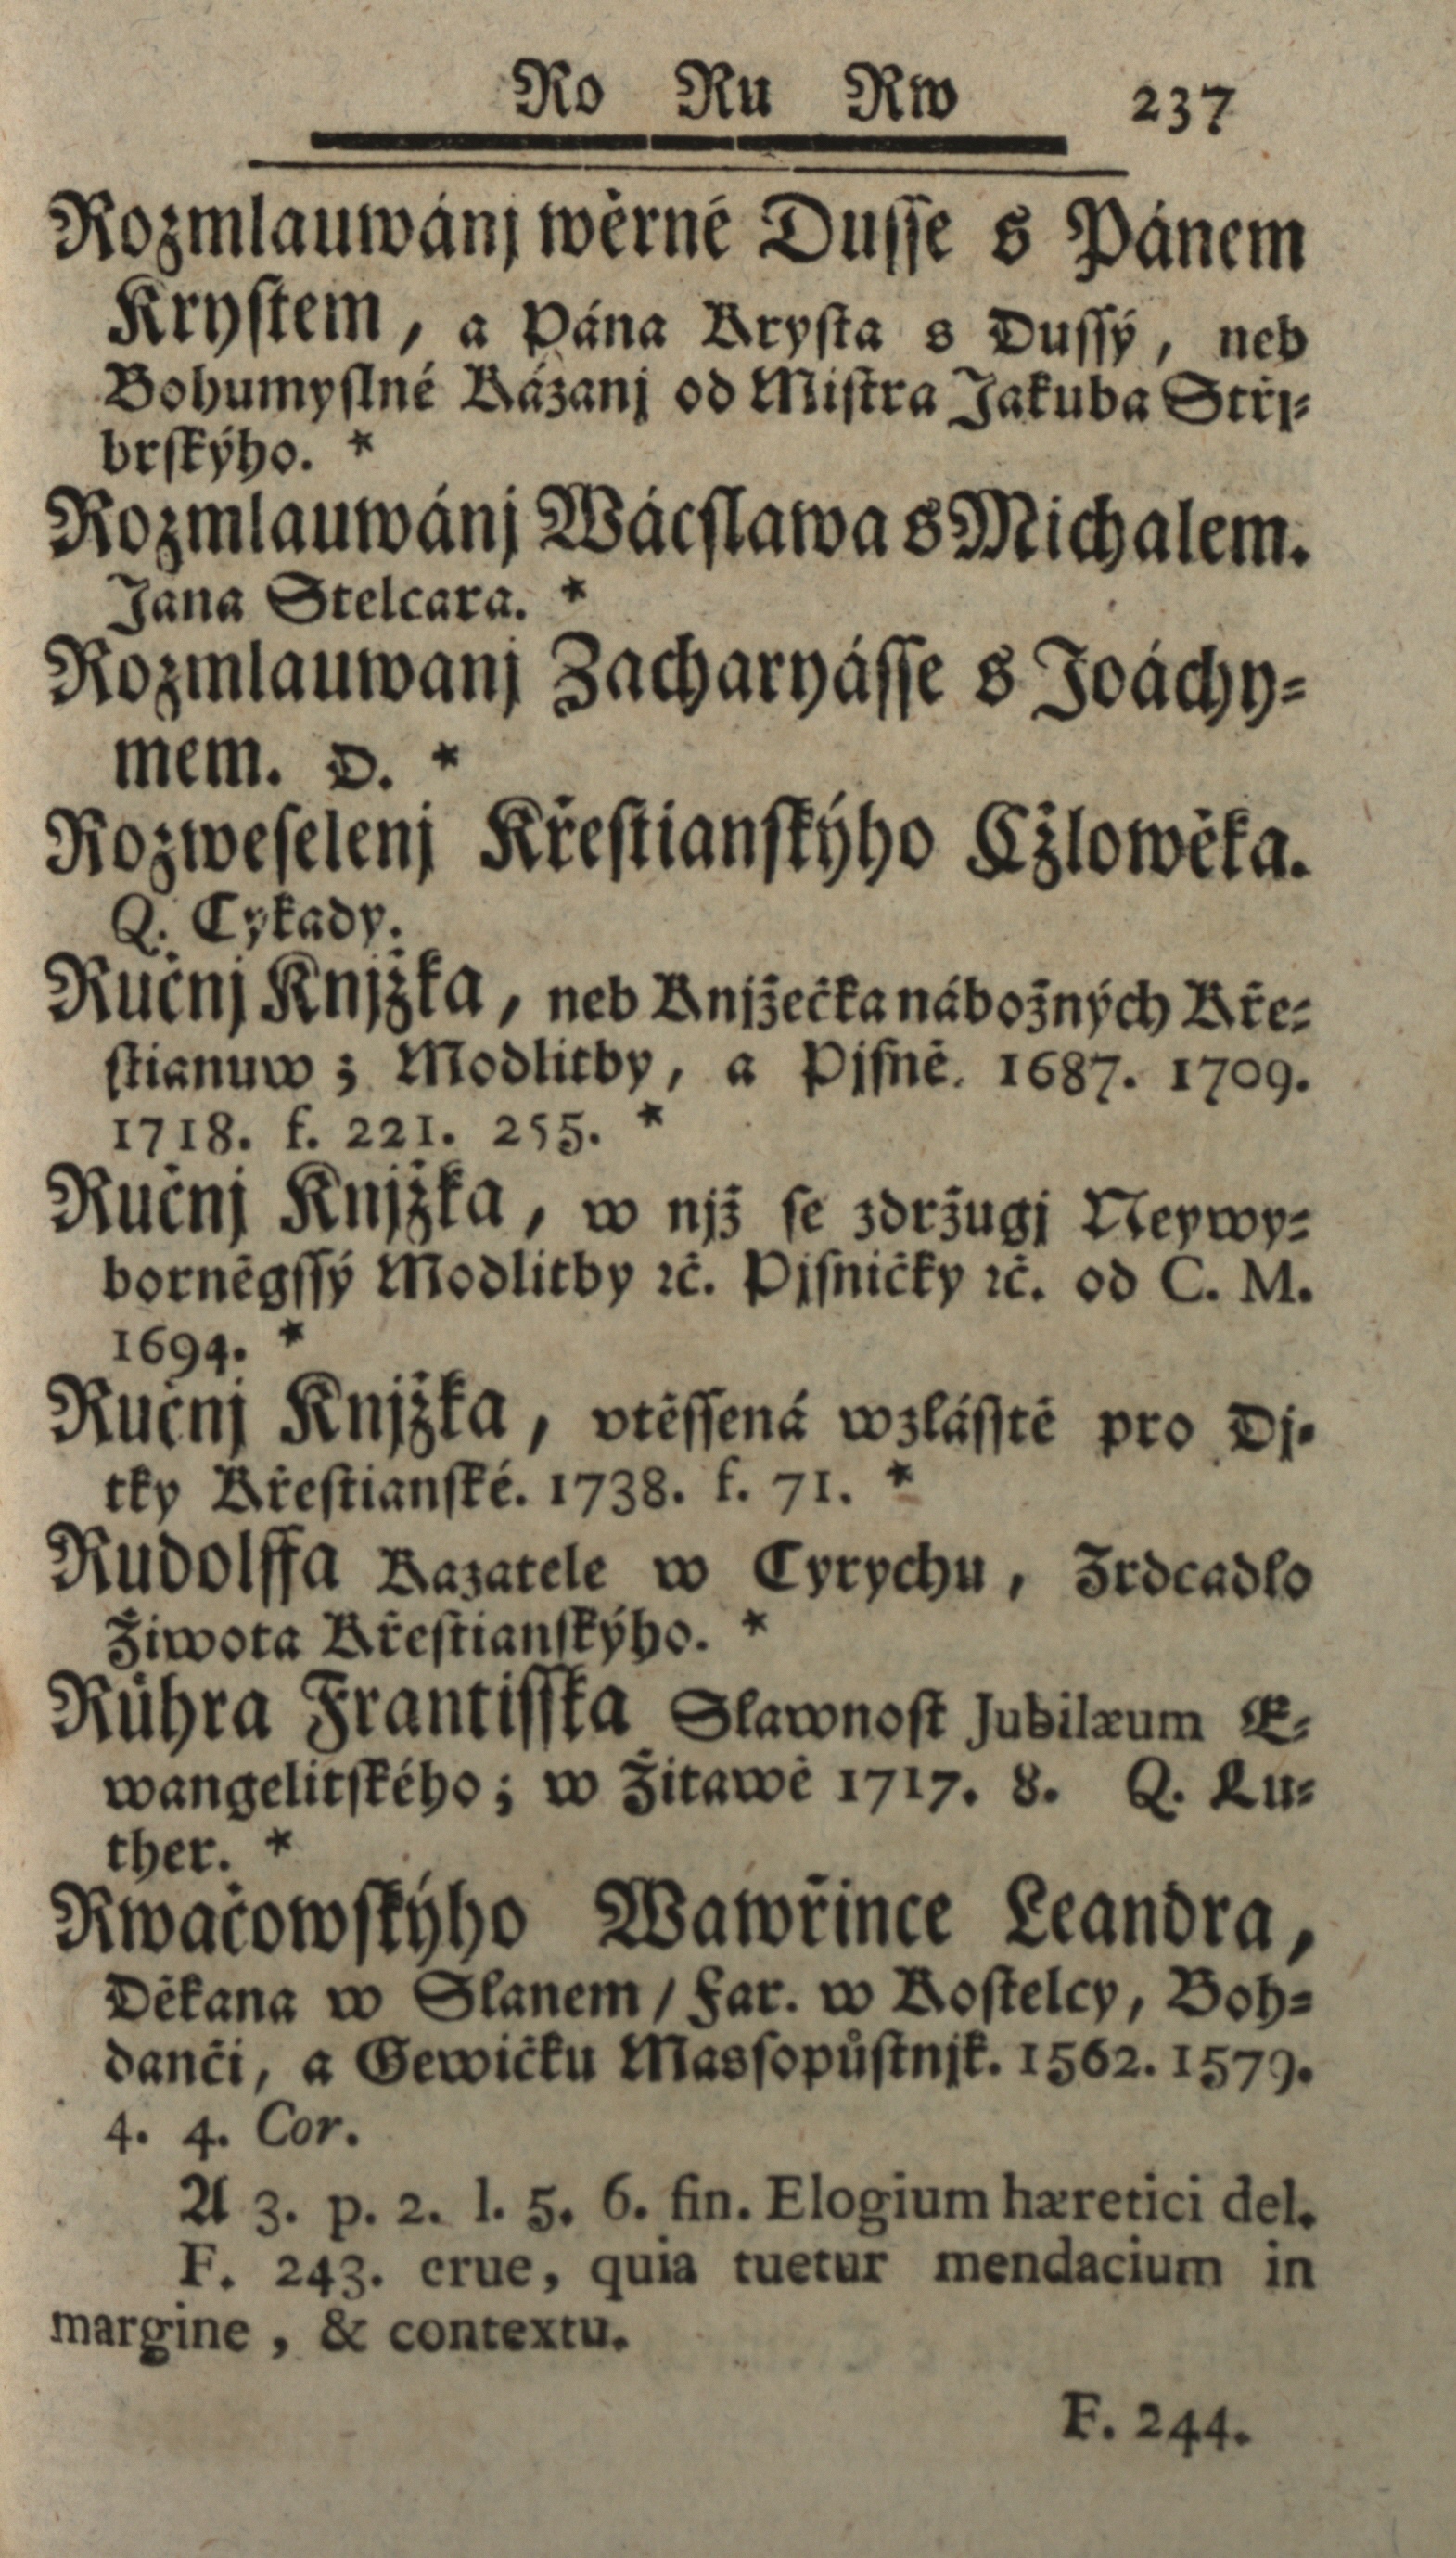 Ro Ru Rw 237
Rozmlauwánj wěrné Dusse s Pánem
Krystem, a Pána Krysta s Dussý, neb
Bohumyslné Kázanj od Mistra Jakuba Střj-
brskýho. *
Rozmlauwánj Wácslawa s Michalem.
Jana Stelcara. *
Rozmlauwanj Zacharyásse s Joáchy-
mem. D. *
Rozweselenj Křestianskýho Cžlowěka.
Q. Cykady.
Ručnj Knjžka, neb Knjžečka nábožných Kře-
stianuw; Modlitby, a Pjsně. 1687. 1709.
1718. f. 221. 255. *
Ručnj Knjžka, w njž se zdržugj Neywy-
borněgssý Modlitby ꝛč. Pjsničky ꝛč. od C. M.
1694. *
Ručnj Knjžka, vtěssená wzlásstě pro Dj-
tky Křestianské. 1738. f. 71. *
Rudolffa Kazatele w Cyrychu, Zrdcadlo
Žiwota Křestianskýho. *
Rühra Frantisska Slawnost Jubilæum E-
wangelitského; w Žitawě 1717. 8. Q. Lu-
ther. *
Rwačowskýho Wawřince Leandra,
Děkana w Slanem / Far. w Kostelcy, Boh-
danči, a Gewičku Massopůstnjk. 1562. 1579.
4. 4. Cor.
A 3. p. 2. l. 5. 6. fin. Elogium hæretici del.
F. 243. erue, quia tuetur mendacium in
margine, & contextu.
F. 244.